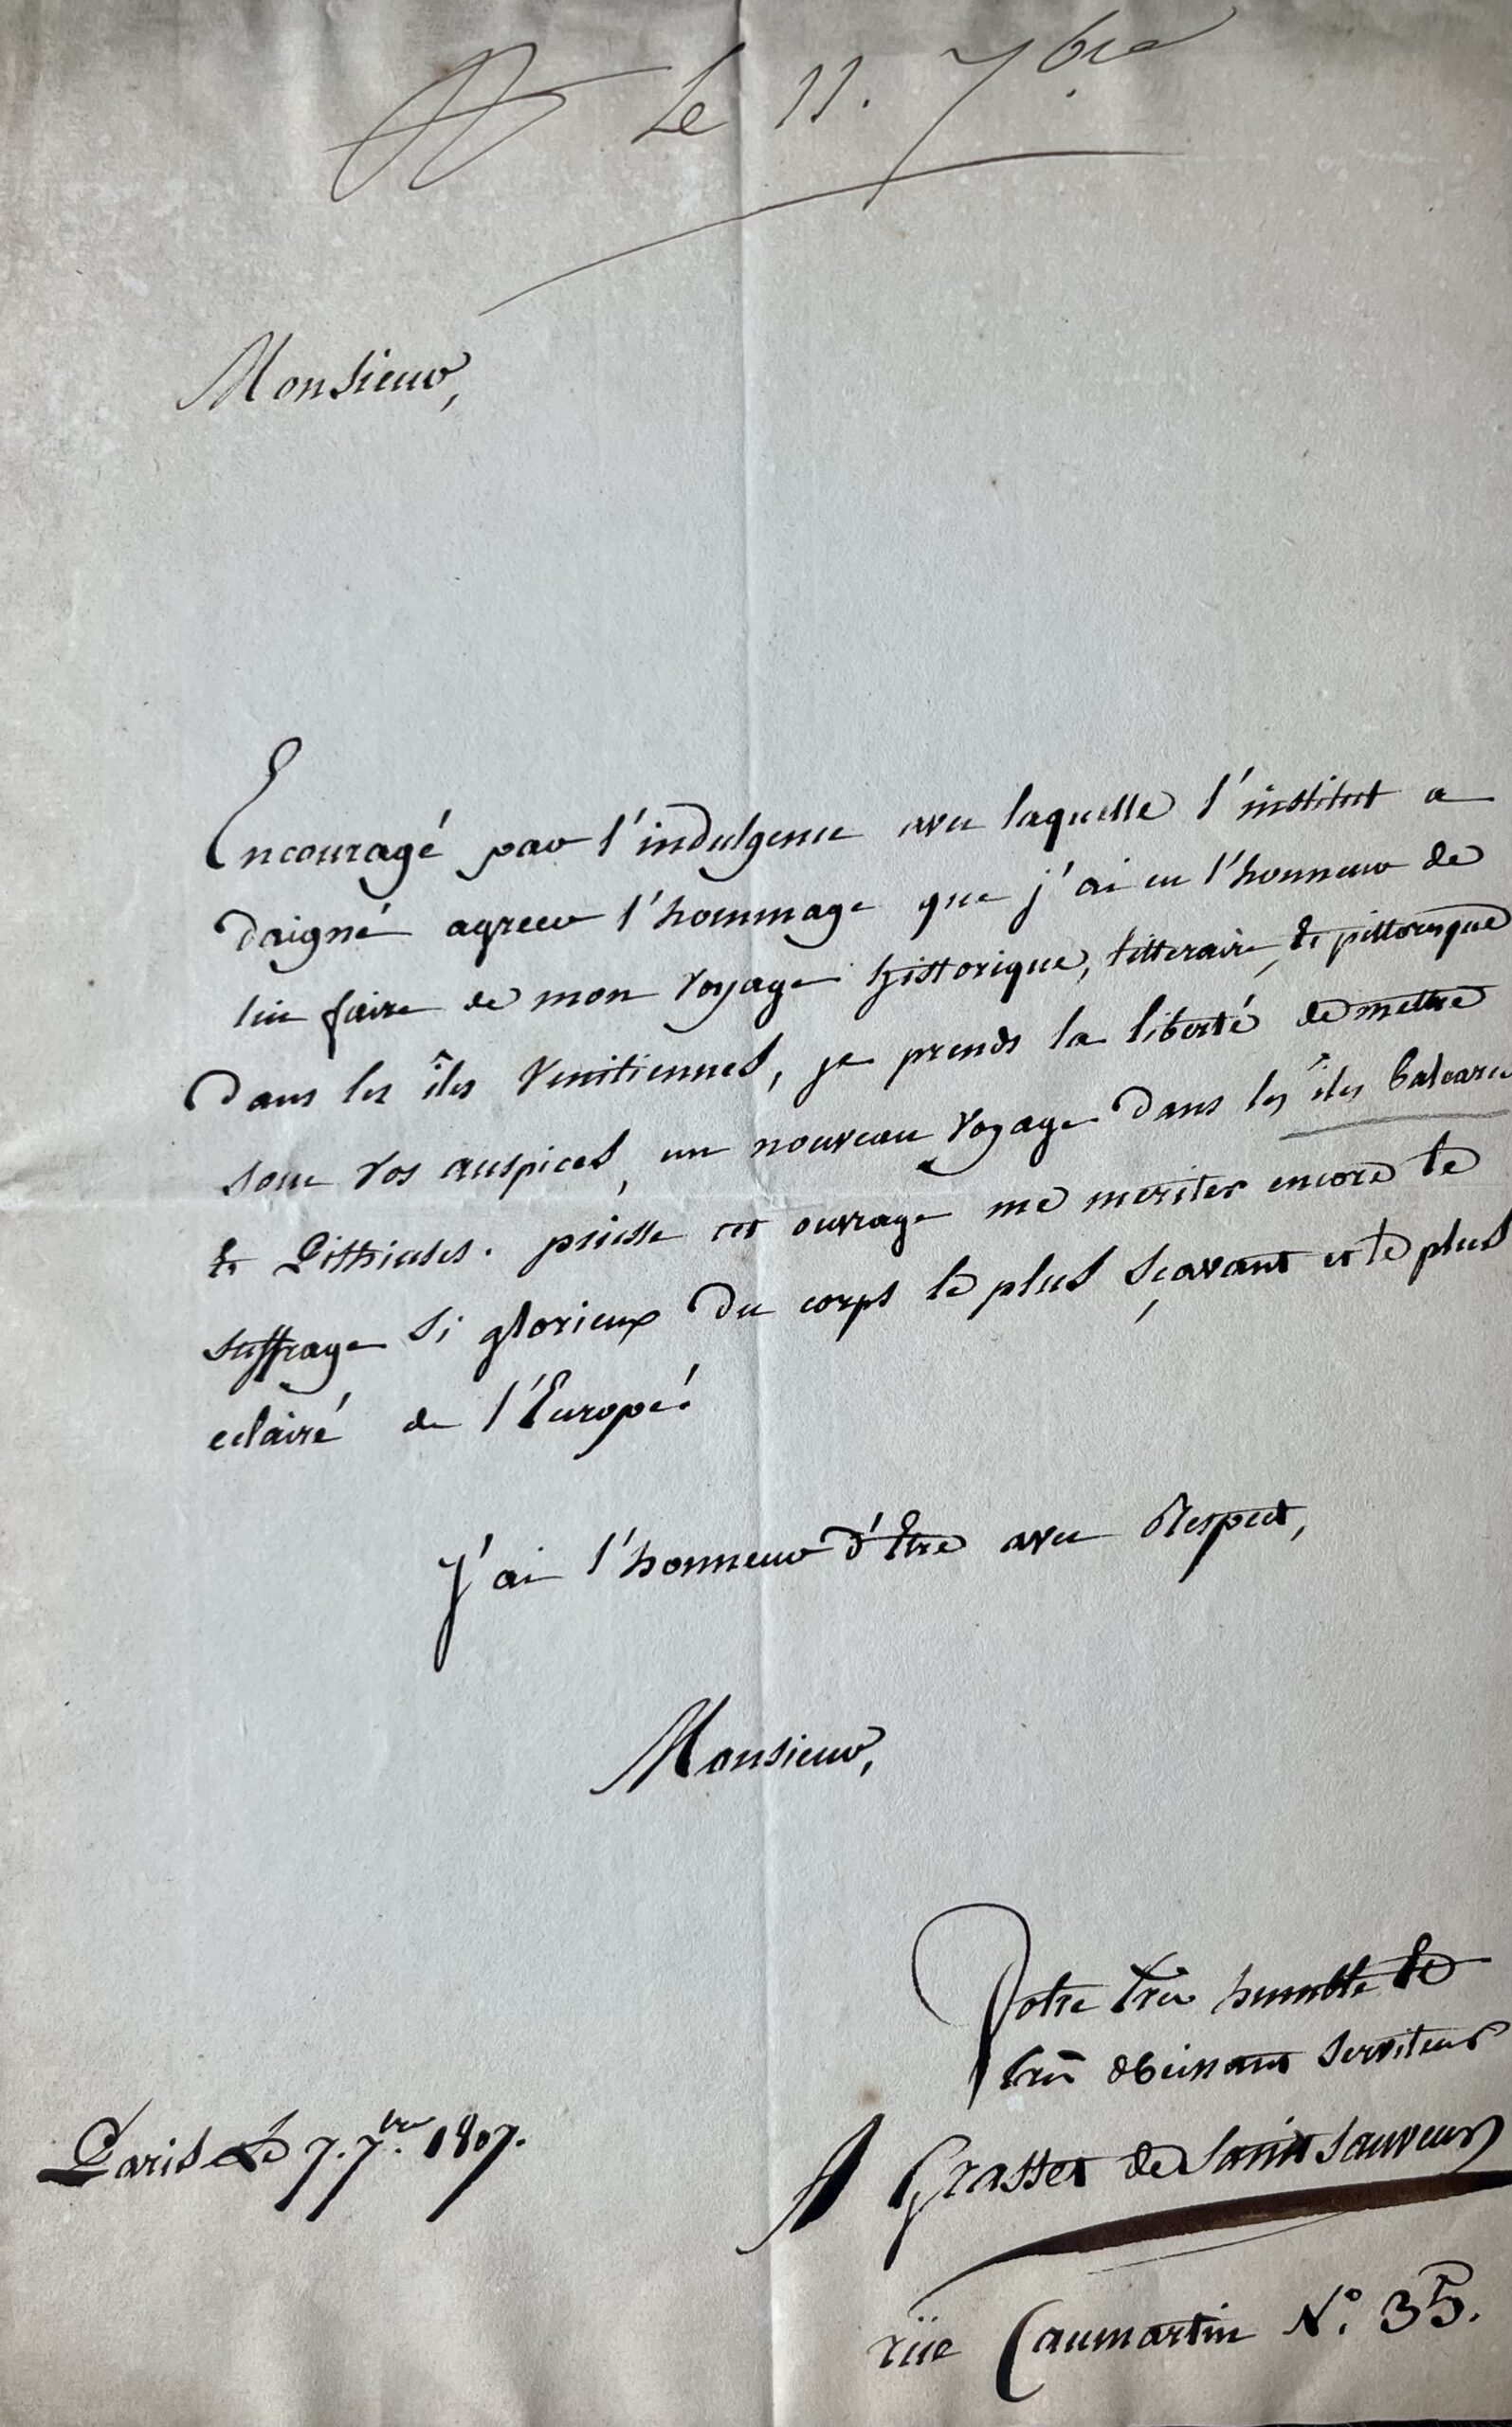 Le 11. 7bre
Monsieur,
Encouragé par l'indulgence avec laquelle l'institut a
daigné agreer l'hommage que j'ai eu l'honneur de
lui faire de mon voyage historique, litteraire, & pittoresque
dans les îles Venitiennes, je prends la liberté de mettre
sous vos auspices, un nouveau voyage dans les îles baleares
& Pithiuses. puisse cet ouvrage me meriter encore le
suffrage si glorieux du corps le plus sçavant et le plus
eclairé de l'Europe.
J'ai l'honneur d'être avec Respect,
Monsieur,
Votre très humble &
très obeissant serviteur
A Grasset de Saint Sauveur
Paris le 7. 7bre. 1807.
rüe Caumartin N°. 35.